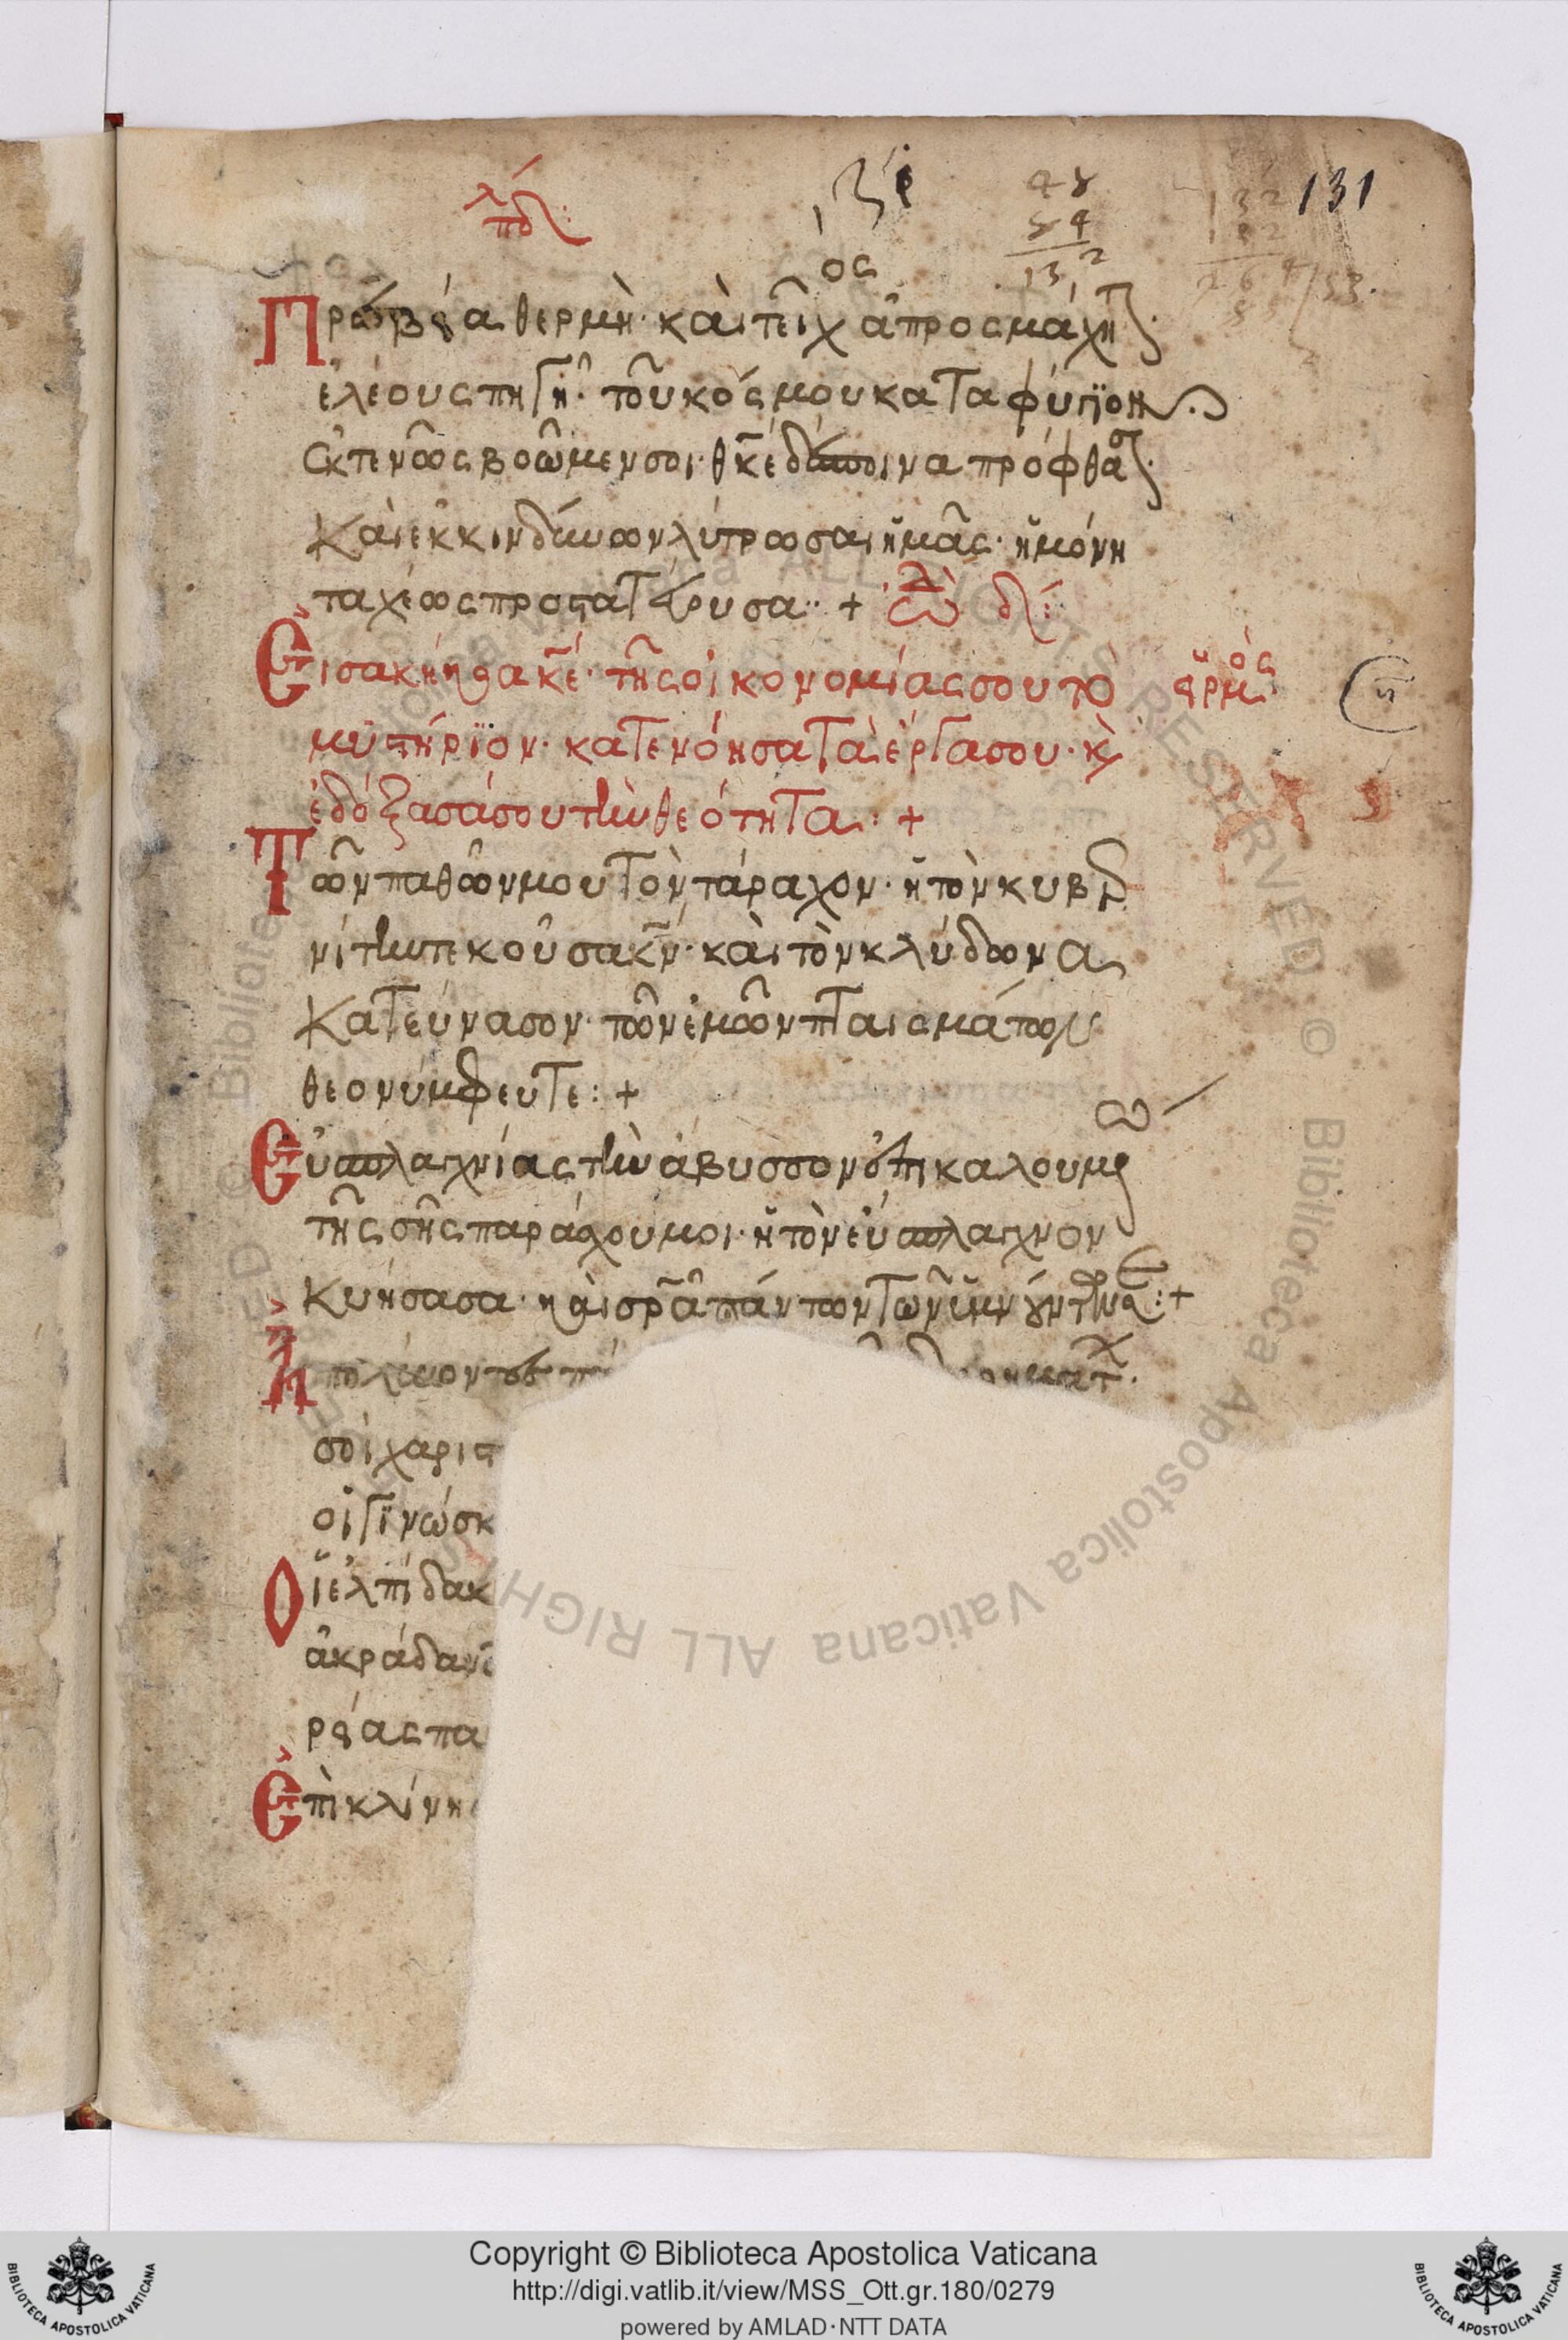 131
Πρεσβεία θερμὴ· καὶ τεῖχ ος ἀπροσμάχητ
ἐλέους πηγὴ· τοῦ κόσμου καταφύγϊον
ἐκτενῶς βοῶμεν σοι· θκε δέσποινα πρόφθασ
καὶ ἐκ κινδύνων λύτρωσαι ἡμᾶς· ἡ μόνη
ταχέως προστατεύουσα·· + ὠδ δ:
Εἰσακήκοα κε· τῆς οἰκονομίας σου τὸ
ειρμος
μυστήρϊον· κατενόησα τὰ ἔργα σου· κ
ἐδόξασά σου τὴν θεότητα: +
Τῶν παθῶν μου τὸν τάραχον· ἡ τὸν κυβερ
νίτην τεκοῦσα κν· καὶ τὸν κλύδωνα
κατεύνασον· τῶν ἐμῶν πταισμάτων
θεονύμφευτε: +
Εὐσπλαχνίας τὴν ἄβυσσον ἐπικαλουμέν ω
τῆς σῆς παράσχου μοι· ἡ τὸν εὔσπλαχνον
κυήσασα· καὶ σρα πάντων τῶν ὑμνούντων σε: +
Ἀπολάυοντες
σοι χαρισ
οἱ γϊνώσκ
Οἱ ἐλπίδα κ
ἀκράδαν
ρείας πα
Ἐπὶ κλίνη
Copyright © Biblioteca Apostolica Vaticana
http://digi.vatlib.it/view/MSS_Ott.gr.180/0279
powered by AMLAD·NTT DATA
BIBLIOTECA APOSTOLICA VATICANA
BIBLIOTECA APOSTOLICA VATICANA